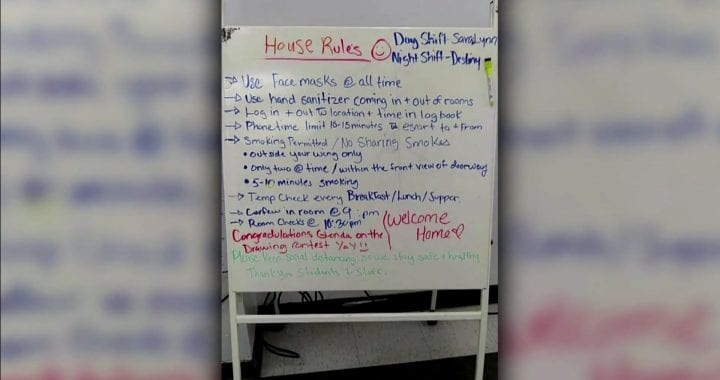 House Rules
Day Shift - SaraLynn
Night Shift - Destiny
→ Use Face masks @ all time
→ Use hand sanitizer coming in + out of rooms
→ Log in + out to location + time in log book
→ Phone time limit 10-15 minutes to escart to + From
→ Smoking Permitted / No Sharing Smokes
• outside your wing only
• only two @ time / within the front view of doorway
• 5-10 minutes smoking
→ Temp Check every Breakfast / Lunch / Supper
→ Curfew in room @ 9 pm
→ Room Checks @ 10:30pm
Congradulations Glenda on the
Drawing contest YAY!!
Welcome
Home
Please keep social distancing so we stay safe + healthy
Thank you Students + Staff.